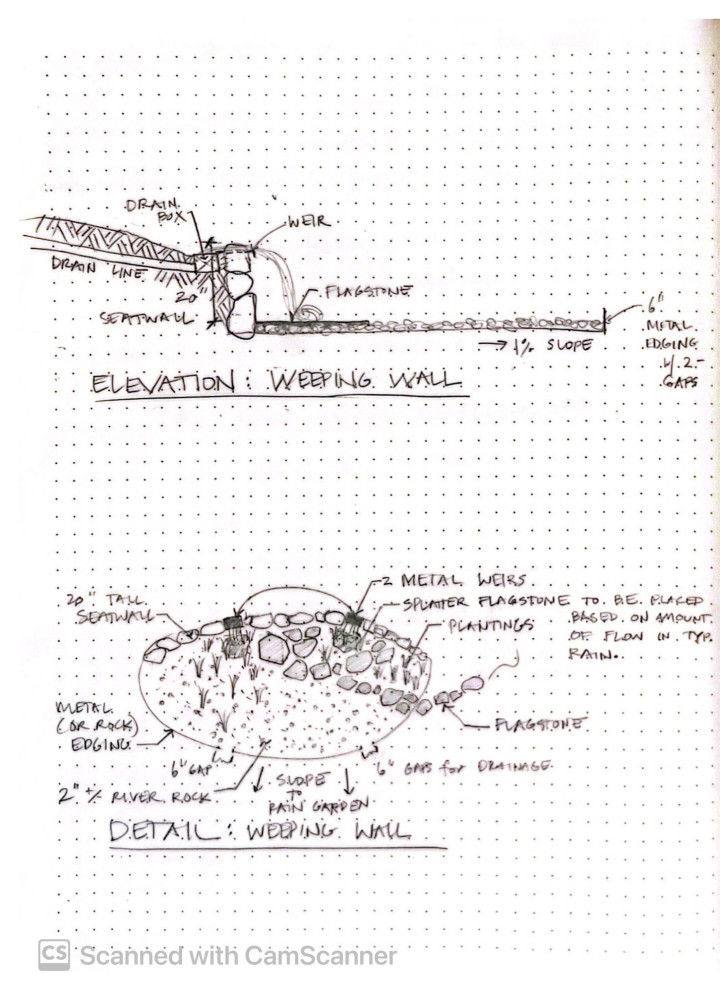 DRAIN
BOX
WEIR
DRAIN LINE
20"
FLAGSTONE
SEATWALL
6"
METAL
EDGING
W/ 2-
GAPS
→ 1% SLOPE
ELEVATION: WEEPING WALL
2 METAL WEIRS
20" TALL
SEATWALL
SPLATTER FLAGSTONE TO BE PLACED
BASED ON AMOUNT
OF FLOW IN TYP.
RAIN.
PLANTINGS
METAL
(OR ROCK)
EDGING
FLAGSTONE
6" GAP
6" GAPS for DRAINAGE
2" +/- RIVER ROCK
SLOPE
TO
RAIN GARDEN
DETAIL: WEEPING WALL
CS Scanned with CamScanner